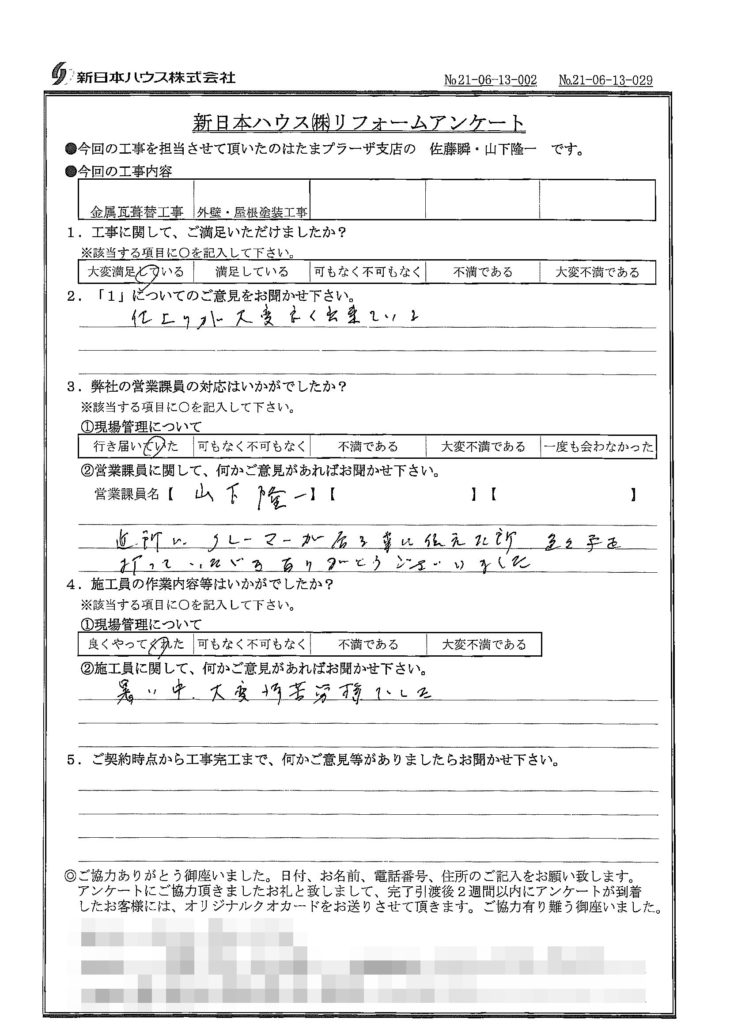 新日本ハウス株式会社
№21-06-13-002 №21-06-13-029
新日本ハウス㈱リフォームアンケート
●今回の工事を担当させて頂いたのはたまプラーザ支店の 佐藤瞬・山下隆一 です。
●今回の工事内容
金属瓦葺替工事 外壁・屋根塗装工事
1.工事に関して、ご満足いただけましたか?
※該当する項目に○を記入して下さい。
大変満足している 満足している 可もなく不可もなく 不満である 大変不満である
2.「1」についてのご意見をお聞かせ下さい。
仕上りが大変良く出来ている
3.弊社の営業課員の対応はいかがでしたか?
※該当する項目に○を記入して下さい。
①現場管理について
行き届いていた 可もなく不可もなく 不満である 大変不満である 一度も会わなかった
②営業課員に関して、何かご意見があればお聞かせ下さい。
営業課員名【 山下隆一 】【 】【 】
近所にクレーマーが居る事に伝えた所 手を
打っていただきありがとうございました
4.施工員の作業内容等はいかがでしたか?
※該当する項目に○を記入して下さい。
①現場管理について
良くやってくれた 可もなく不可もなく 不満である 大変不満である
②施工員に関して、何かご意見があればお聞かせ下さい。
暑い中、大変御苦労様でした
5.ご契約時点から工事完工まで、何かご意見等がありましたらお聞かせ下さい。
◎ご協力ありがとう御座いました。日付、お名前、電話番号、住所のご記入をお願い致します。
アンケートにご協力頂きましたお礼と致しまして、完了引渡後2週間以内にアンケートが到着
したお客様には、オリジナルクオカードをお送りさせて頂きます。ご協力有り難う御座いました。